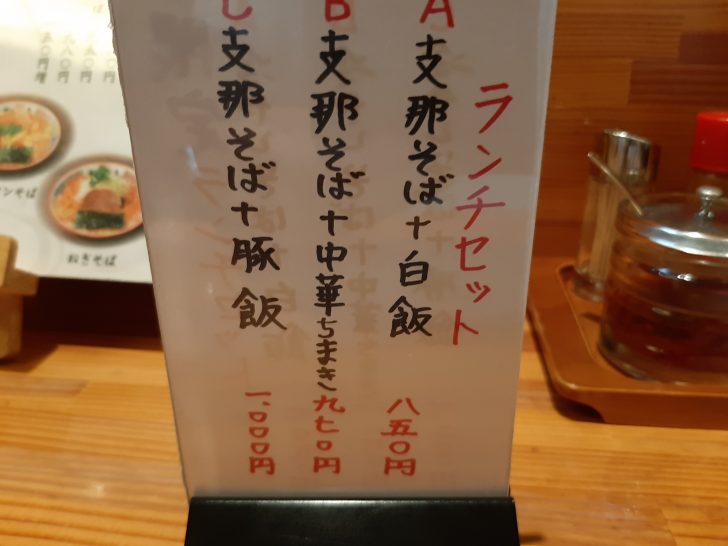 ランチセット
A 支那そば+白飯 八五〇円
B 支那そば+中華ちまき 九七〇円
C 支那そば+豚飯 一、〇〇〇円
ねぎそば